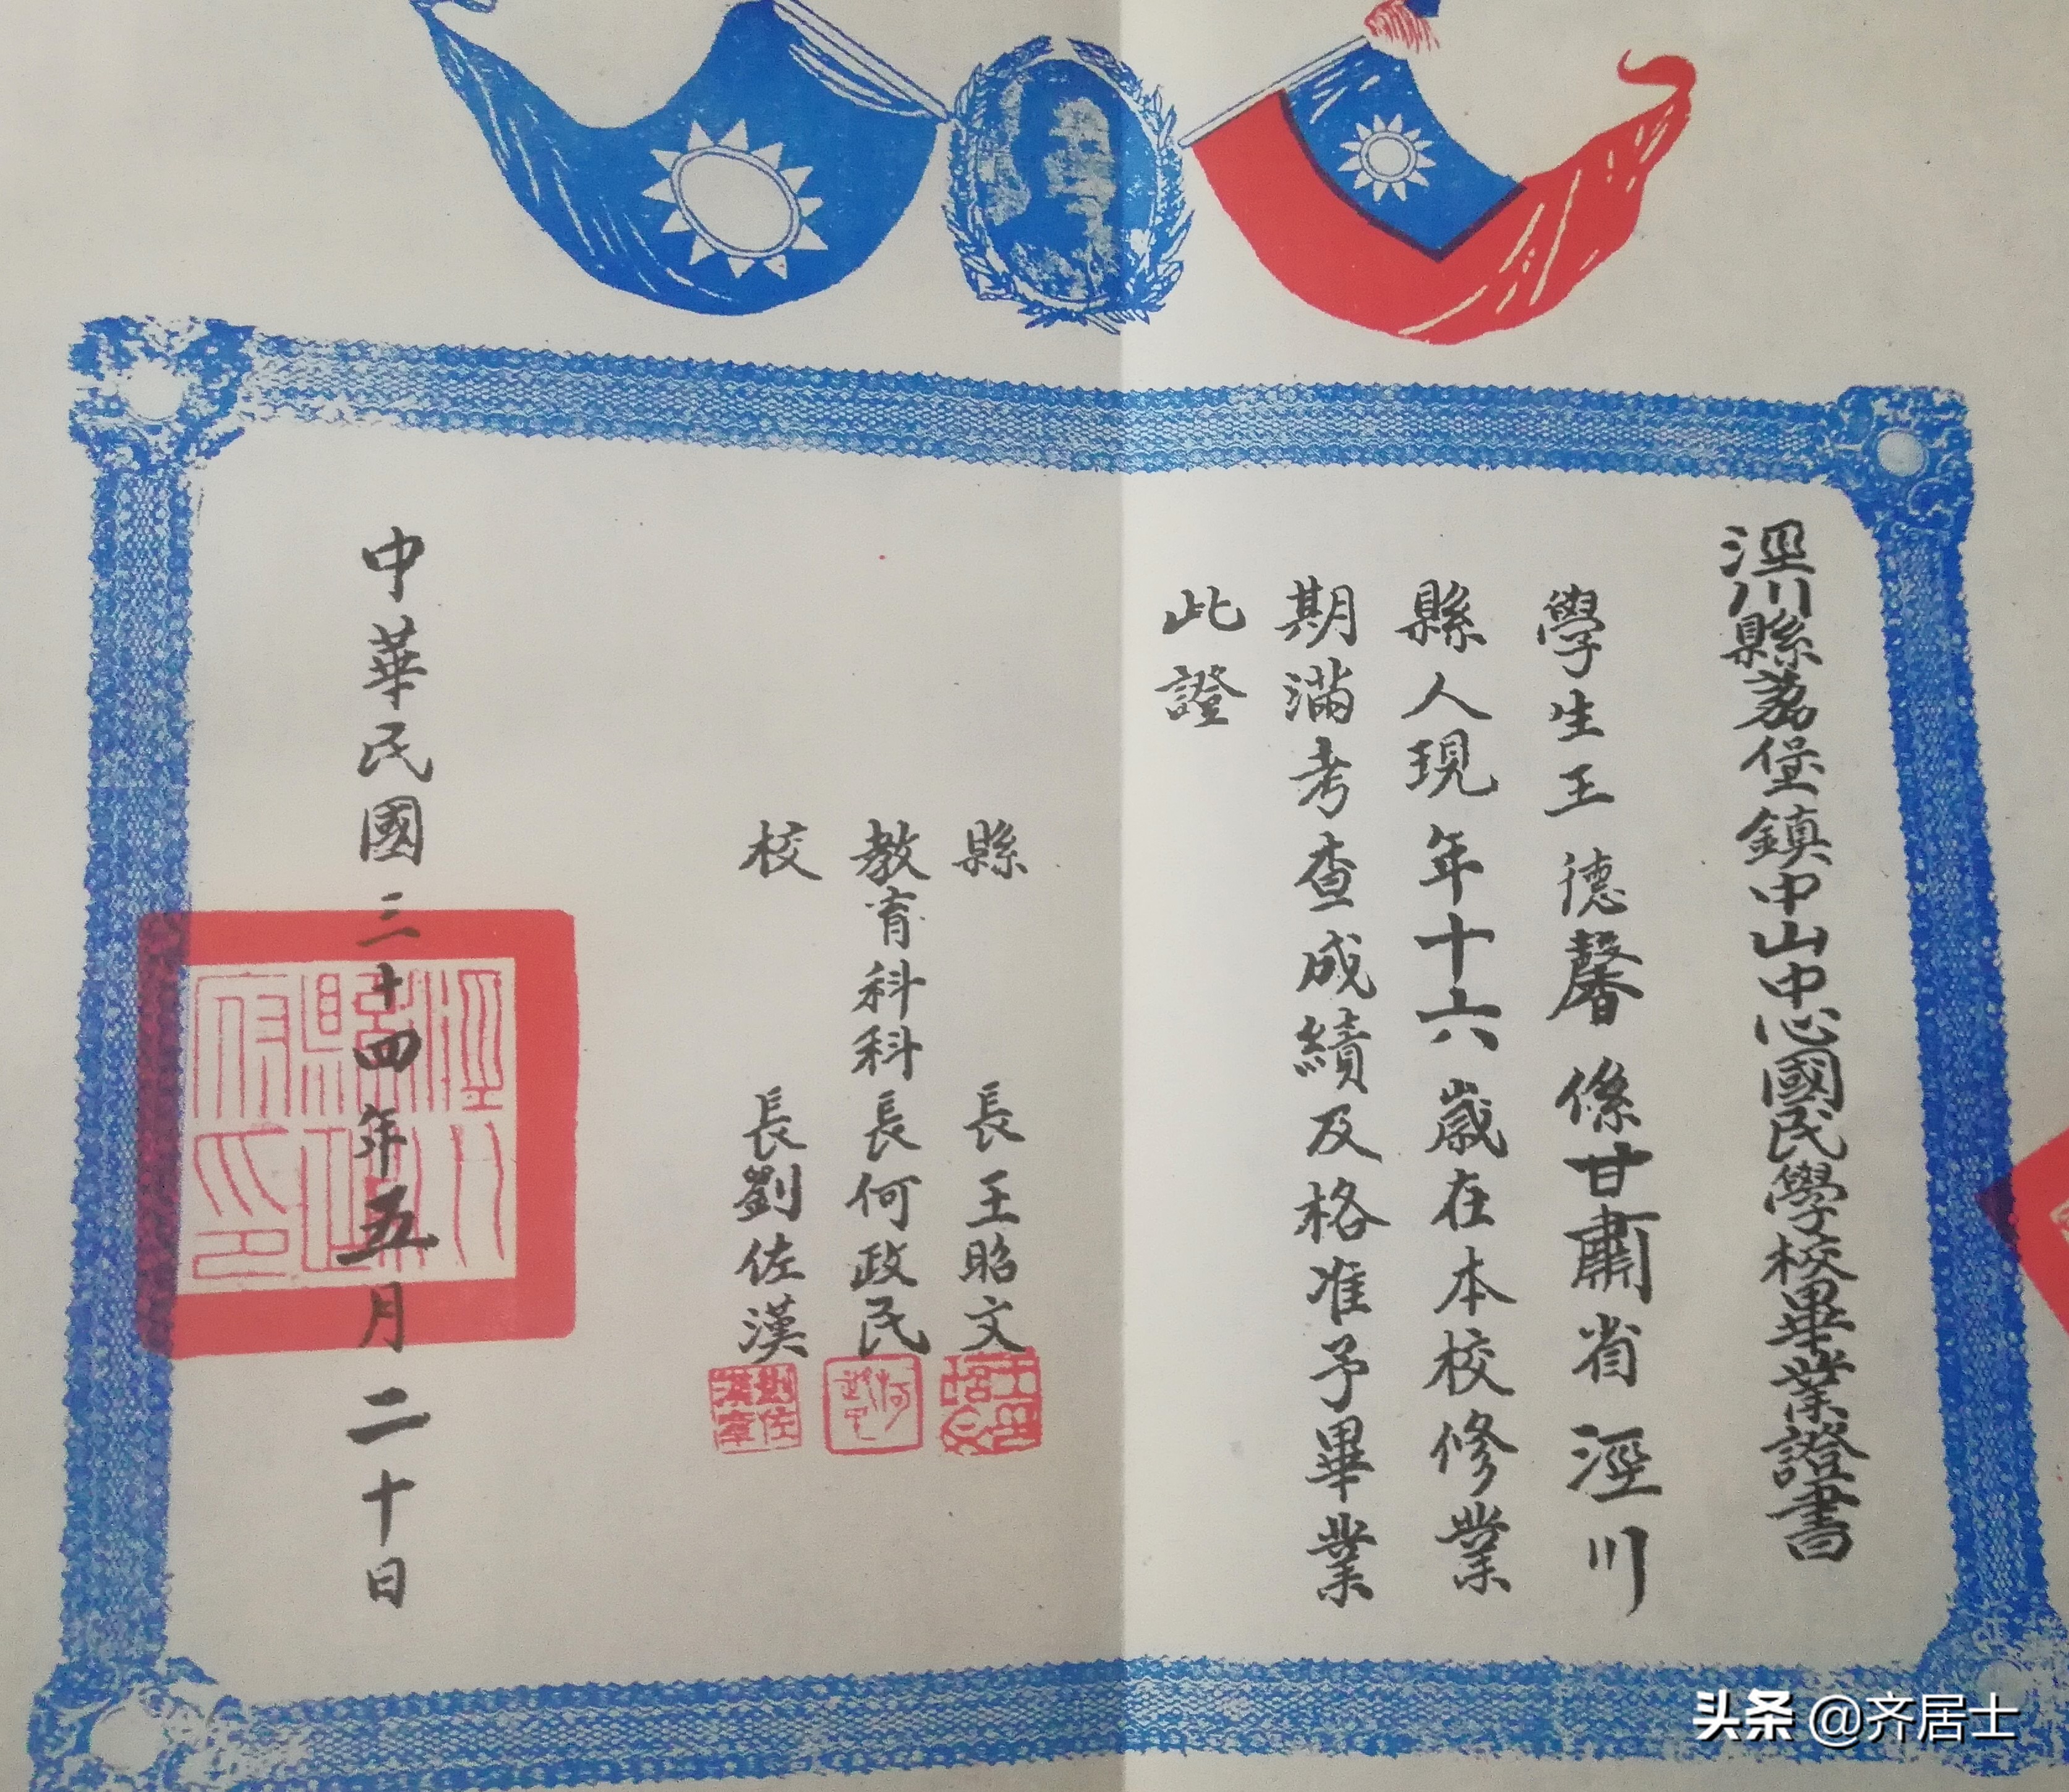 涇川縣荔堡鎮中山中心國民學校畢業證書
學生王德馨係甘肅省涇川
縣人現年十六歲在本校修業
期滿考查成績及格准予畢業
此證
縣長王昭文
教育科科長何政民
校長劉佐漢
中華民國三十四年五月二十日
涇川縣政府印
劉佐漢章
头条 @齐居士